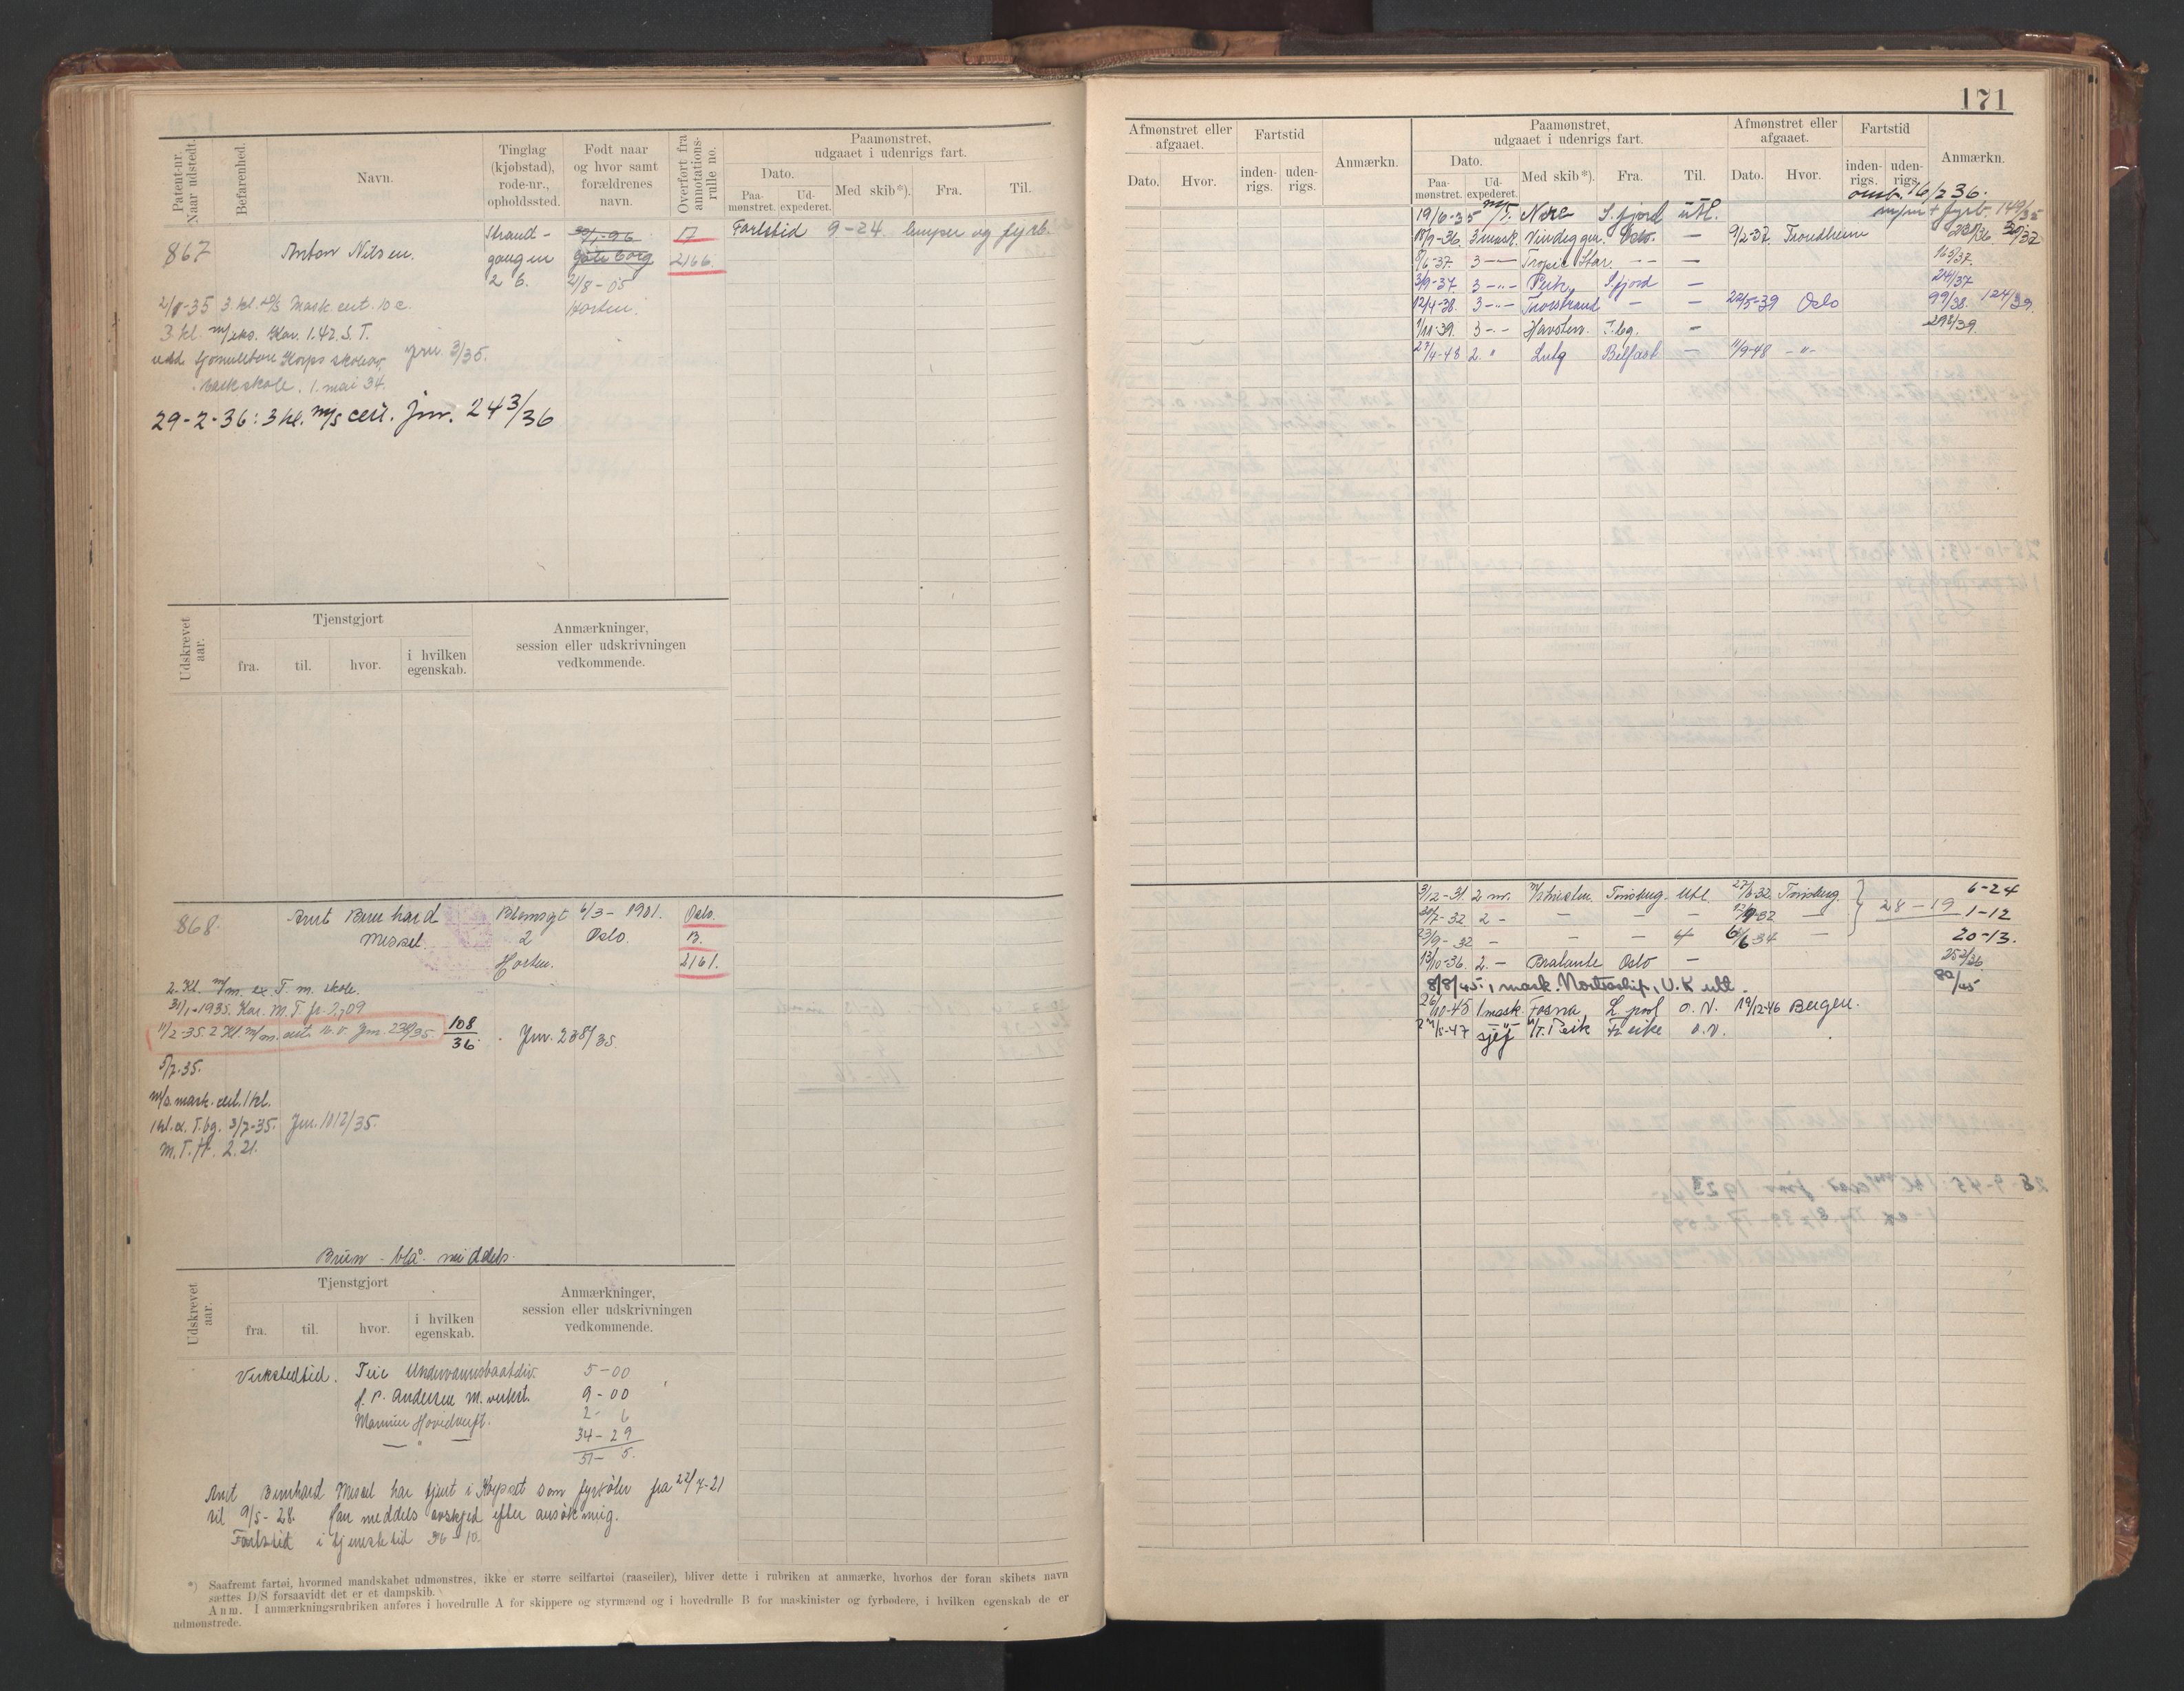 171
Patent-nr. Naar udstedt.
Befarenhed.
Navn.
Tinglag (kjøbstad), rode-nr., opholdssted.
Født naar og hvor samt forældrenes navn.
Overført fra annotations-rulle no.
Paamønstret, udgaaet i udenrigs fart.
Dato.
Paa-mønstret.
Ud-expederet.
Med skib*).
Fra.
Til.
867
Anton Nilsen.
Strand-
gangen
2 b.
30/1-96
Göteborg
21/8-05
Horten.
17
2166.
Fartstid 9-24. lemper og fyrb.
3 kl. D/S Mask cert.
3 kl. Kar. 1.42. S. T.
Jnr. 3/35.
1. mai 34.
29-2-36: 3 kl. m/s cert. Jnr. 243/36
Udskrevet aar.
Tjenstgjort
fra.
til.
hvor.
i hvilken egenskab.
Anmærkninger, session eller udskrivningen vedkommende.
868
Arnt Bernhard
Messel.
Blomsgt
2
Horten.
6/3-1901.
Oslo.
Oslo.
B.
2161.
2. Kl. m/m. ex. T. m. skole.
31/1-1935. Kar. M. T. fr. 2,09
11/2-35. 2 Kl. m/m. Jnr. 238/35.
108/36
Jnr. 238/35.
5/7-35.
m/s mask. cert. 1 kl.
1 kl. e. T.bg. 3/7-35. Jnr. 1012/35.
M. T. fr. 2.21.
Brün - blå - middels.
Udskrevet aar.
Tjenstgjort
fra.
til.
hvor.
i hvilken egenskab.
Anmærkninger, session eller udskrivningen vedkommende.
Verkstedtid. Teie Undervannsbaatdiv. 5-00
Andersen M. verkst. 9-00
Marinens Hovedverft. 2- 6
— " — 34-29
51- 5.
Arnt Bernhard Messel har tjent i Korpset som fyrböter fra 22/7-21
til 9/5-28. Han meddels avskjed efter ansökning.
Fartstid i tjenestetid 36-10.
*) Saafremt fartøi, hvormed mandskabet udmønstres, ikke er større seilfartøi (raaseiler), bliver dette i rubriken at anmærke, hvorhos der foran skibets navn
sættes D/S forsaavidt det er et dampskib.
Anm. I anmærkningsrubriken anføres i hovedrulle A for skippere og styrmænd og i hovedrulle B for maskinister og fyrbødere, i hvilken egenskab de er
udmønstrede.
Afmønstret eller afgaaet.
Dato.
Hvor.
Fartstid
inden-rigs.
uden-rigs.
Anmærkn.
Paamønstret, udgaaet i udenrigs fart.
Dato.
Paa-mønstret.
Ud-expederet.
Med skib*).
Fra.
Til.
Afmønstret eller afgaaet.
Dato.
Hvor.
Fartstid
inden-rigs.
uden-rigs.
Anmærkn.
omb. 16/2 36.
19/6-35 m/T. Nore S.fjord utl. 149/35
18/9-36. 3 mask. Vindeggen. Oslo. — 9/2-37. Trondheim
8/6-37. 3 — Tropic Star. — — 163/37.
3/9-37. 3 -"- Peik, S.fjord — 241/37
12/4-38. 3 -"- Thorstrand — — 22/5-39 Oslo 99/38. 124/39.
1/11-39. 3 -- Havsten. T.bg. — 292/39.
27/4-48 2. " Lutz Belfast — 11/9-48 -"-
3/12-31. 2 m. Tönsberg. Utl. 27/6-32. Tönsberg. 6-24
20/7-32 2 - — — — — 28-19 1-12
23/9-32 - — — 6/6-34 — 20-13.
13/10-36. 2. - Brabante Oslo — 252/36
8/8/45. 1 mask. Nortraship, U.K utl. 80/45
26/10-45 1 mask. Fosna, L.pool o. V. 19/12-46 Bergen.
27/5-47 sjef M/T. Peik Feike o.v.